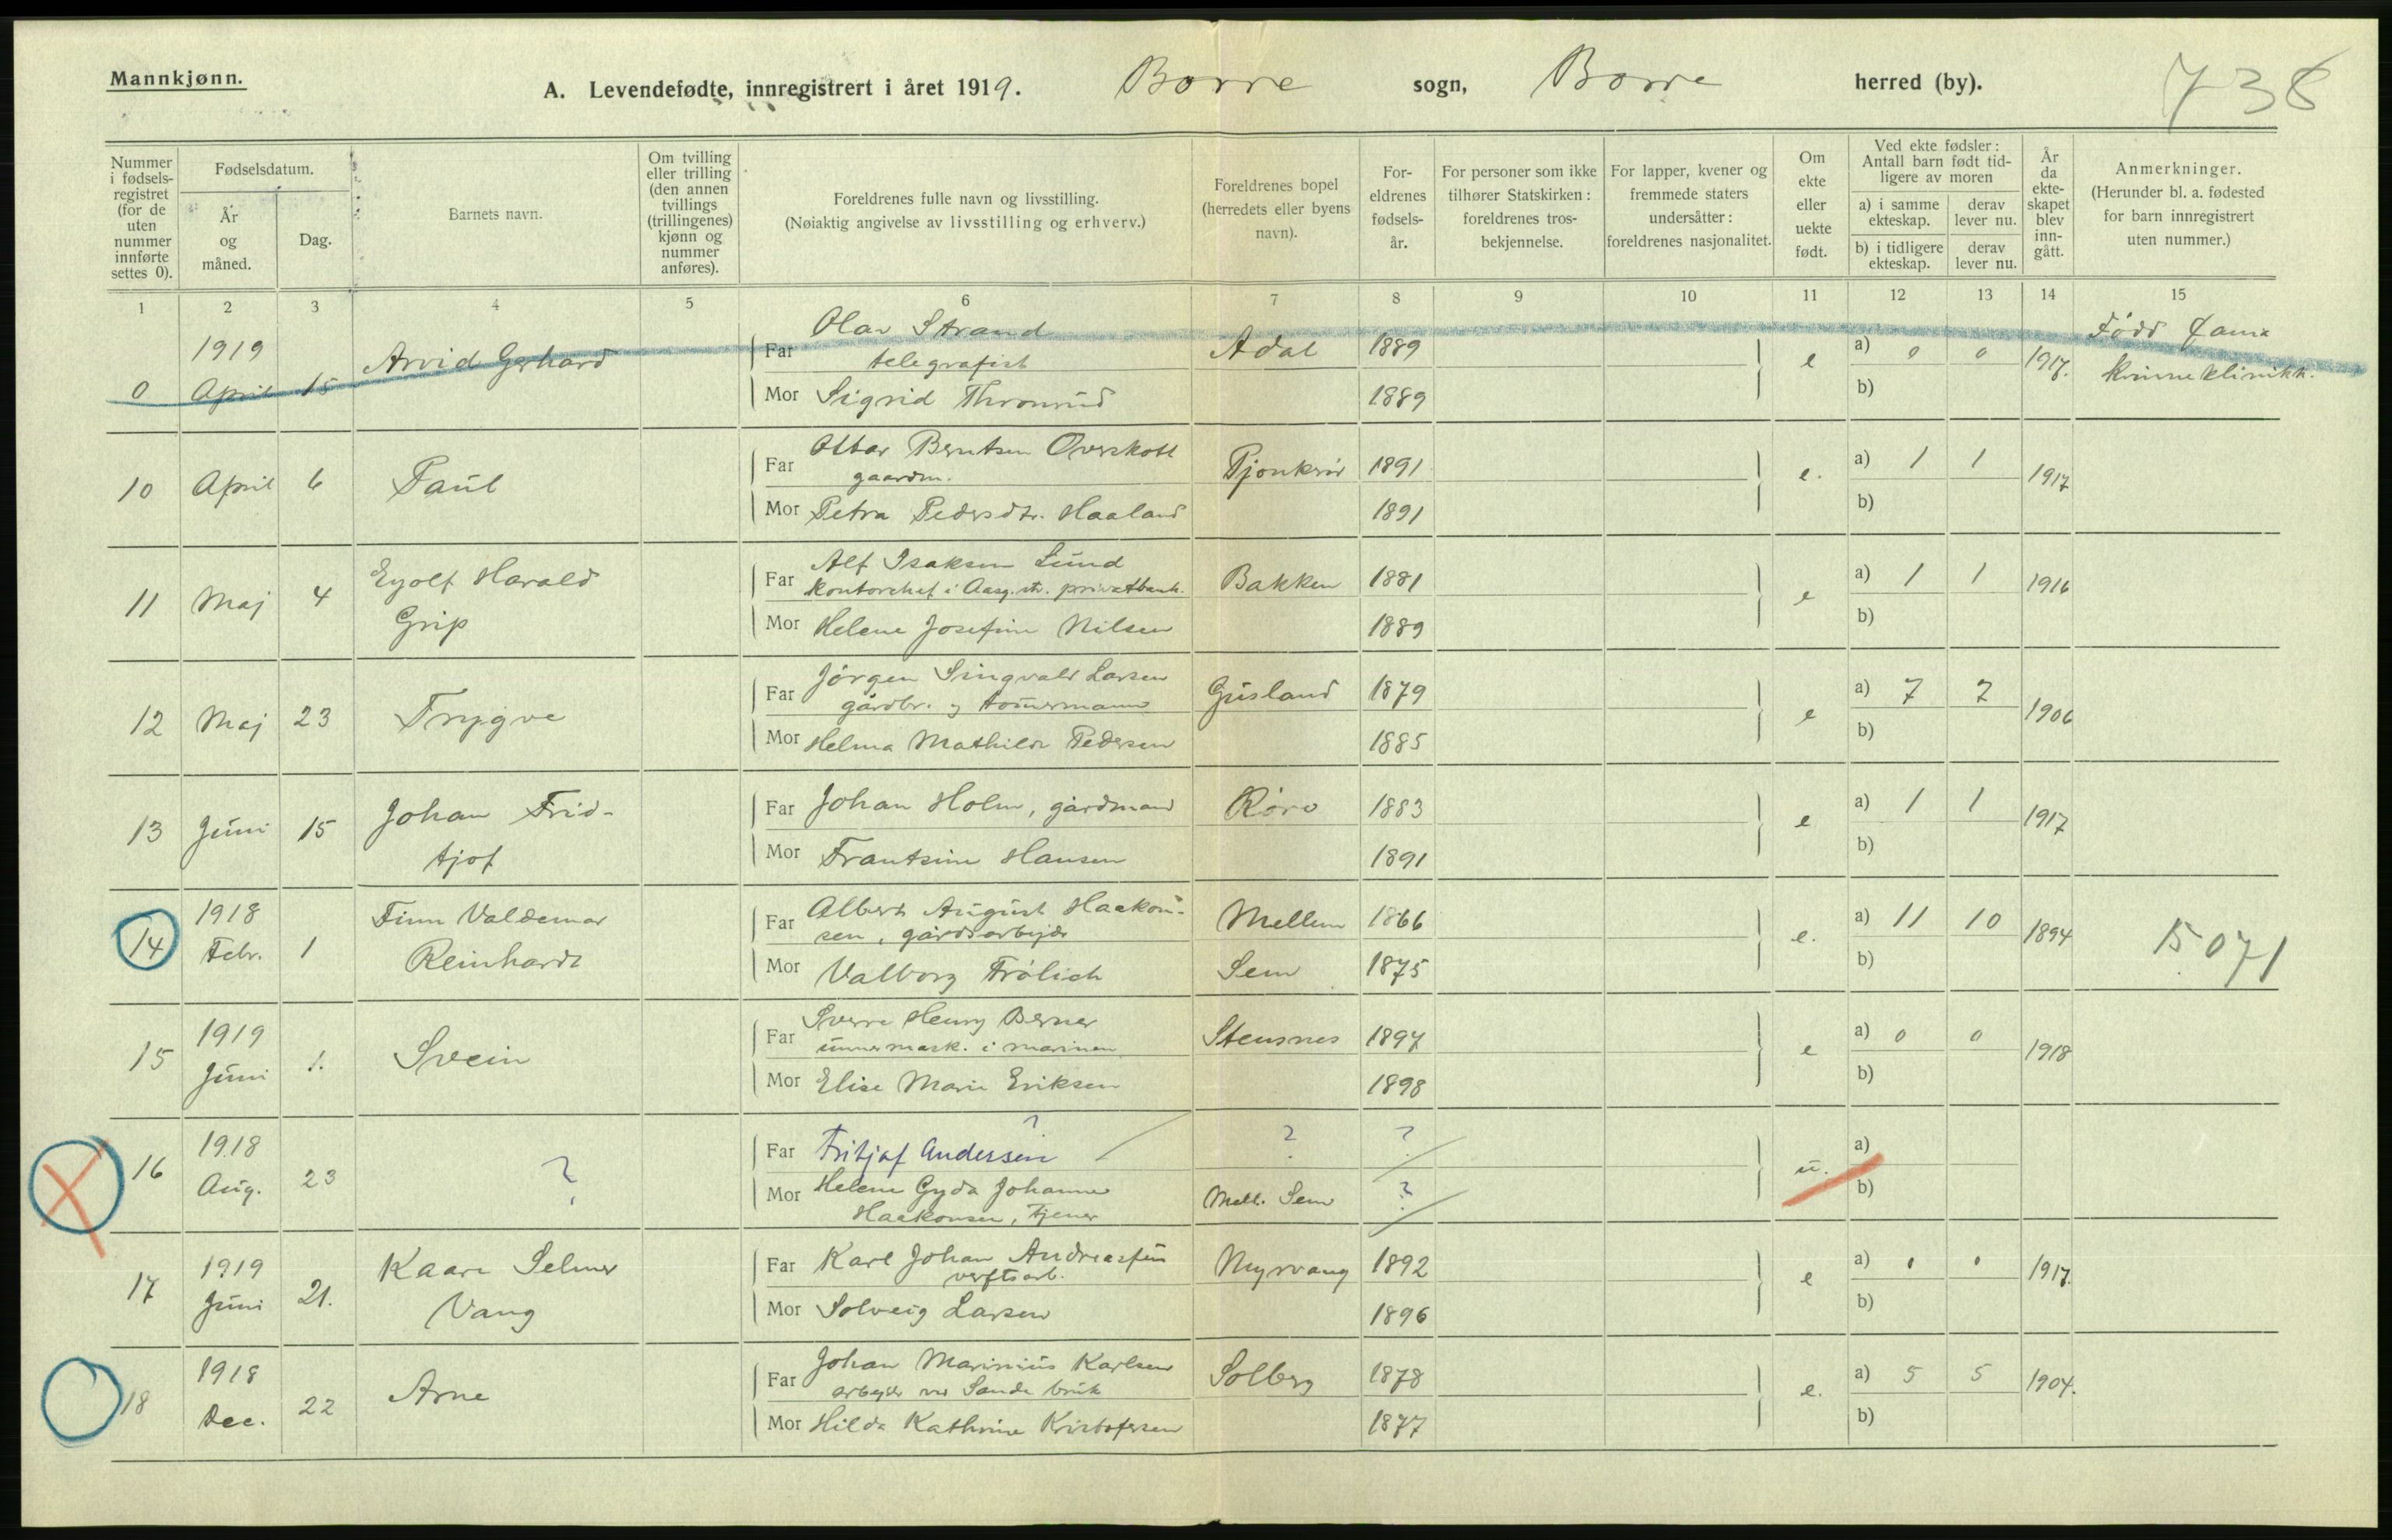 Mannkjønn.
A. Levendefødte, innregistrert i året 1919. Borre sogn, Borre herred (by). 738
Nummer i fødsels-registret (for de uten nummer innførte settes 0).
Fødselsdatum.
År og måned.
Dag.
Barnets navn.
Om tvilling eller trilling (den annen tvillings (trillingenes) kjønn og nummer anføres).
Foreldrenes fulle navn og livsstilling.
(Nøiaktig angivelse av livsstilling og erhverv.)
Foreldrenes bopel (herredets eller byens navn).
For-eldrenes fødsels-år.
For personer som ikke tilhører Statskirken: foreldrenes tros-bekjennelse.
For lapper, kvener og fremmede staters undersåtter: foreldrenes nasjonalitet.
Om ekte eller uekte født.
Ved ekte fødsler: Antall barn født tid-ligere av moren
a) i samme ekteskap.
derav lever nu.
b) i tidligere ekteskap.
derav lever nu.
År da ekte-skapet blev inn-gått.
Anmerkninger.
(Herunder bl. a. fødested for barn innregistrert uten nummer.)
1 2 3 4 5 6 7 8 9 10 11 12 13 14 15
0 1919 April 15 Arvid Gerhard
Far Olav Strand telegrafist Adal 1889 e a) 0 0 1917. Född
Mor Sigrid Thronrud 1889 b) kvinneklinikk.
10 April 6 Paul
Far Ottar Berntsen Overskott gaardm. 1891 e. a) 1 1 1917
Mor Petra Pedersdtr. Haaland 1891 b)
11 Maj 4 Eyolf Harald Grip
Far Alf Isaksen Lund kontorchef i Aasg.str. privatbank. Bakken 1881 e a) 1 1 1916
Mor Helene Josefine Nilsen 1889 b)
12 Maj 23 Trygve
Far Jörgen Singvald Larsen gårdbr. og tømmermann Gusland 1879 e a) 7 7 1906
Mor Helma Mathilde Pedersen 1885 b)
13 Juni 15 Johan Frid-tjof
Far Johan Holm, gårdmand Röro 1883 e a) 1 1 1917
Mor Frantsine Hansen 1891 b)
14 1918 Febr. 1 Finn Valdemar Reinhardt
Far Albert August Haakon-sen, gårdsarbejder Mellem 1866 e. a) 11 10 1894 15071
Mor Valborg Frölich Sem 1875 b)
15 1919 Juni 1. Svein
Far Sverre Henry Berner unnermask. i marinen Stensnes 1897 e a) 0 0 1918
Mor Elise Marie Eriksen 1898 b)
16 1918 Aug. 23 ?
Far Fritjof Andersen ? ? ? u. a)
Mor Helene Gyda Johanne Haakonsen, tjener Mell. Sem ? b)
17 1919 Juni 21. Kaare Selmer Vang
Far Karl Johan Andreassen verftsarb. Myrvang 1892 e a) 0 0 1917.
Mor Solveig Larsen 1896 b)
18 1918 Dec. 22 Arne
Far Johan Marinius Karlsen arbejder ved Sande bruk Solberg 1878 e. a) 5 5 1904.
Mor Hilda Kathrine Kristofersen 1877 b)